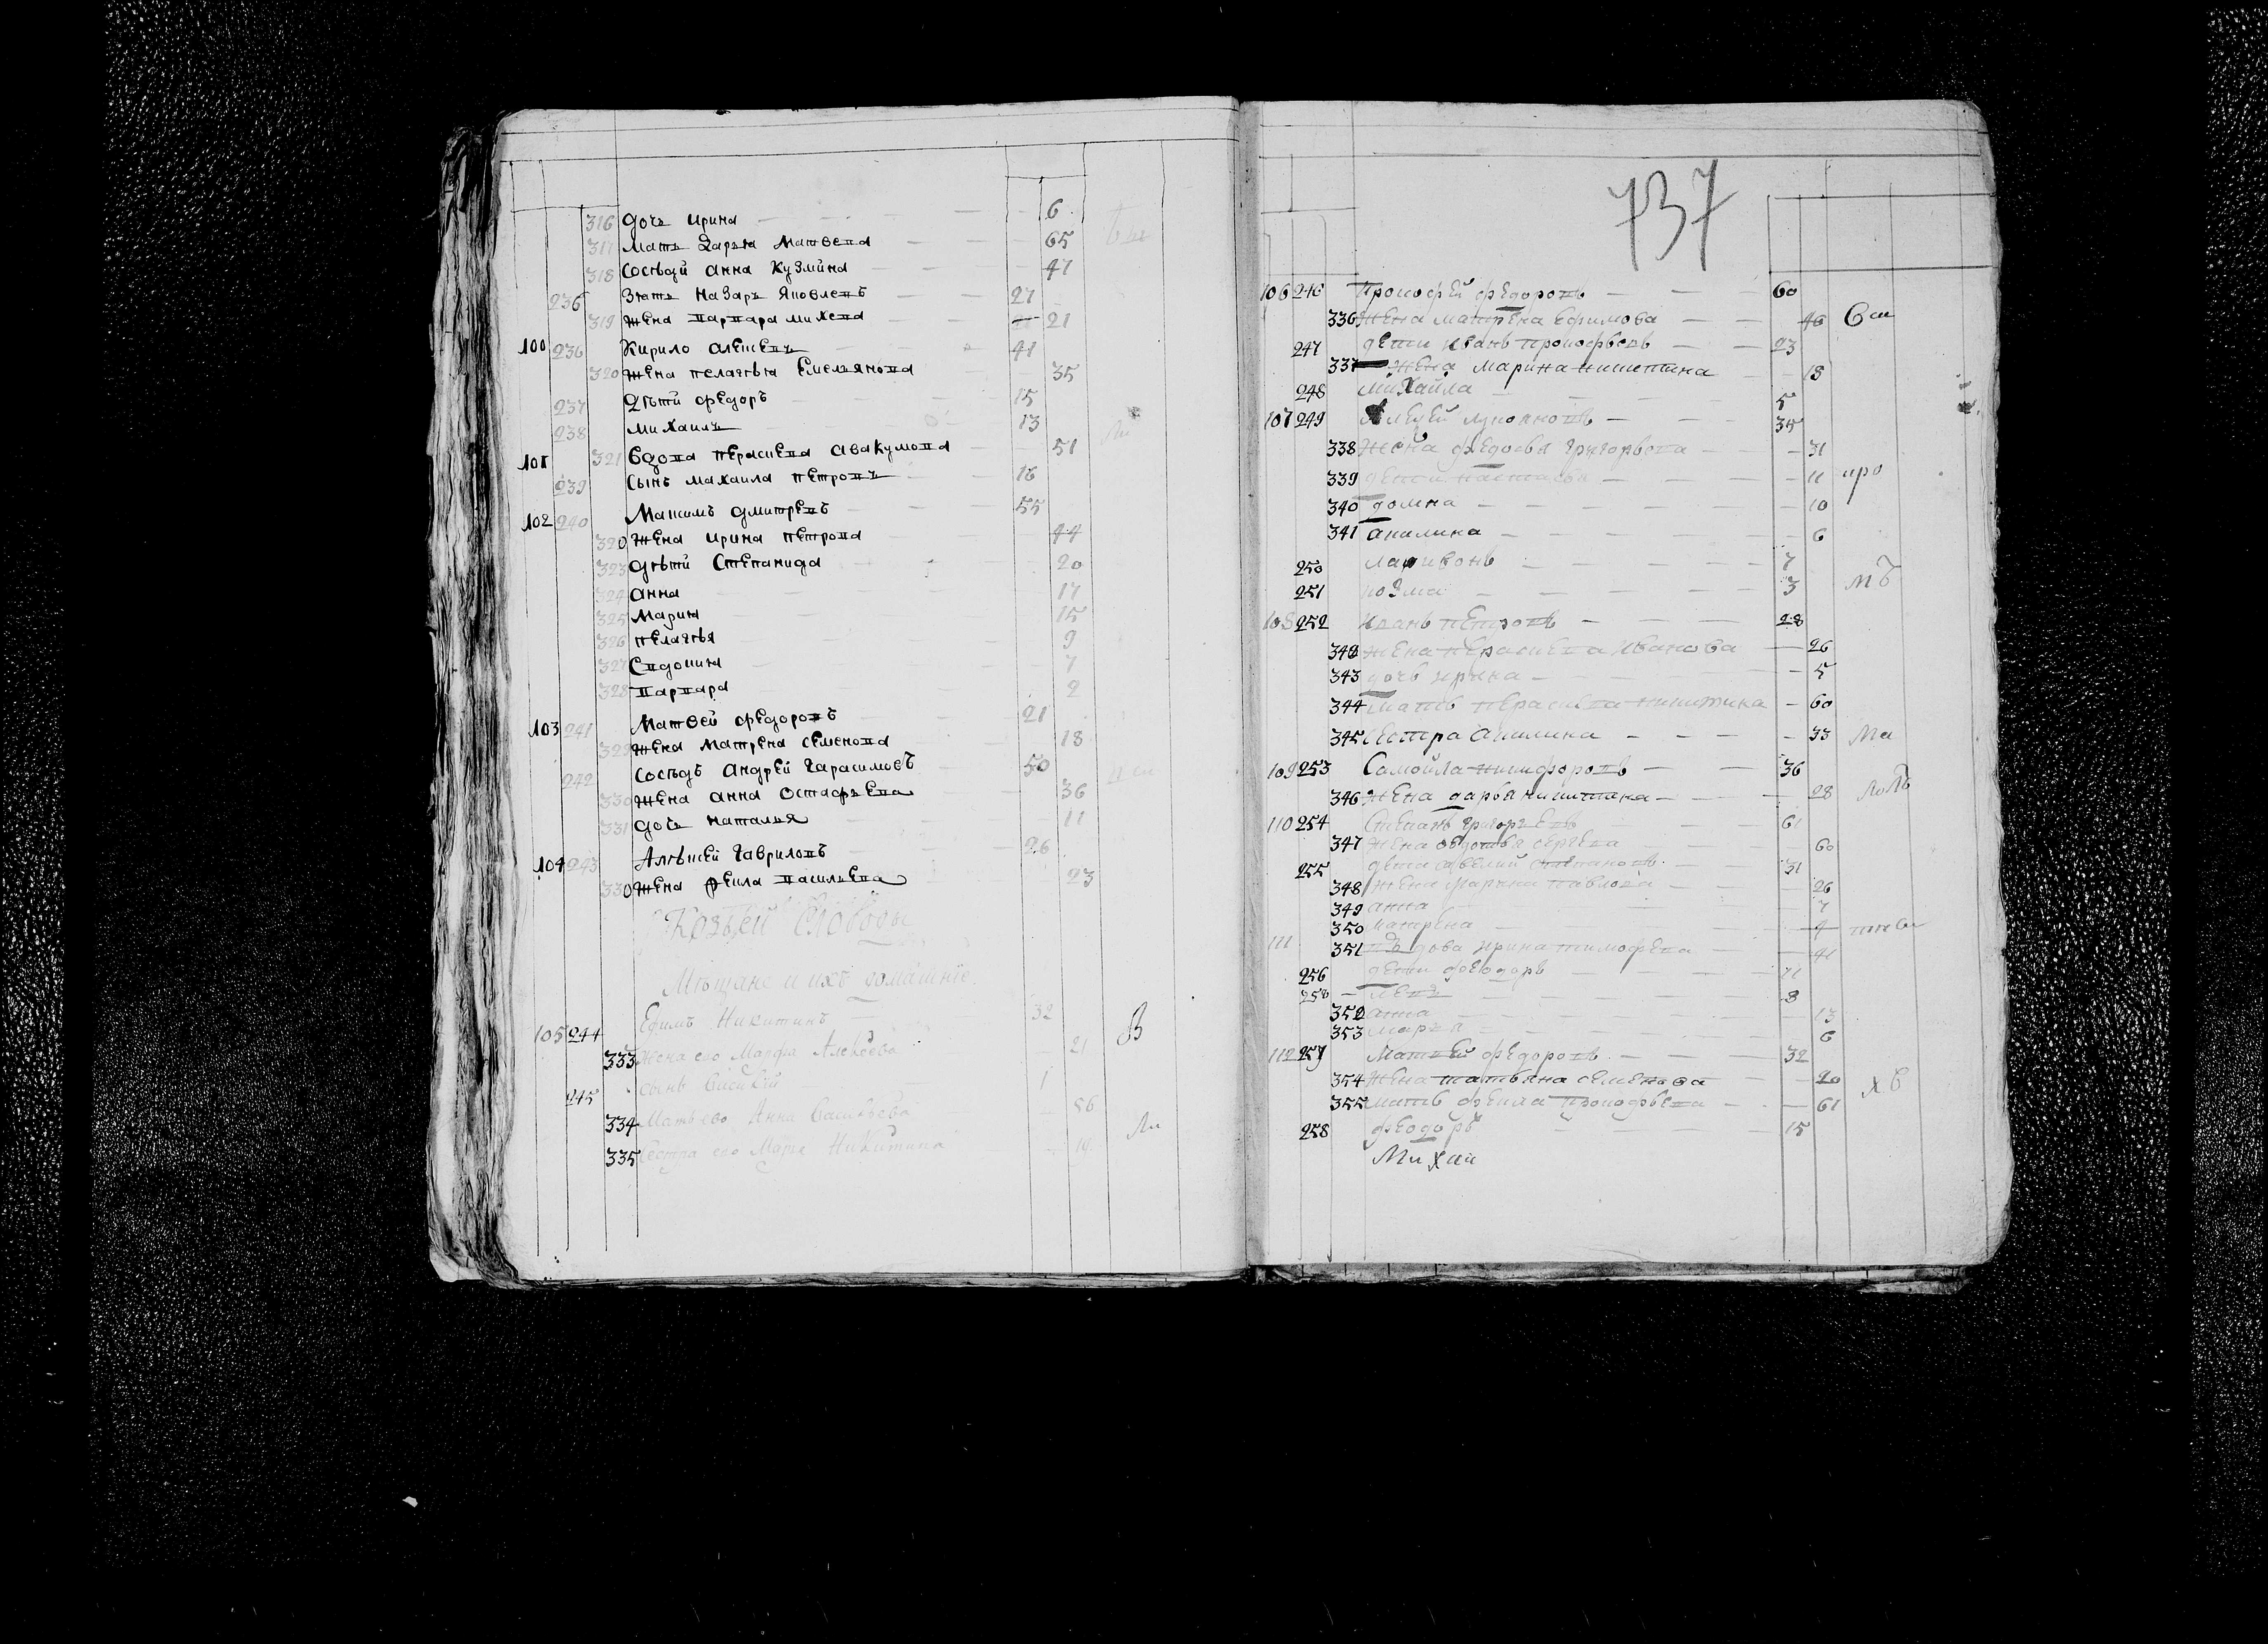 316 дочь ирина 6
317 Мать Дарья Матвева 65
318 Соседй анна Кузмина 47
236 Зять Назаръ Яковлевъ 27
319 жена варвара михева 21
100 236 Кирило алексевъ 41
320 жена пелагѣя Емельянова 35
237 Дѣтй федоръ 15
238 михаилъ 13
101 321 вдова параскева авакумова 51
239 Сынъ михаила петровъ 16
102 240 Максимъ дмитревъ 55
320 жена ирина петрова 44
323 дѣтй Степанида 20
324 анна 17
325 Мария 15
326 пелагѣя 9
327 Евдокия 7
328 варвара 2
103 241 Матвей федоровъ 21
329 жена матрена семенова 18
242 Сосѣдъ андрей гарасимовъ 50
330 жена анна остафьева 36
331 дочь наталья 11
104 243 Алѣксей гавриловъ 26
330 жена фекла васильева 23
Козьей Слободы
Мѣщане и ихъ домашние
105 244 Ефимъ Никитинъ 32
333 жена его Марфа Алексеева 21
245 сынъ 1
334 Мать ево Анна Васильева 56
335 Сестра его Марья Никитина 19
В
Ли
737
106 246 Прокофей федоровъ 60
336 жена матрена ефимова 46 Вси
247 дети иванъ прокофьевъ 23
337 жена марина никитина 18
248 михайла 5
107 249 Алексей лукояновъ 35
338 жена федосья григорьева 31
339 дети настасья 11 про
340 домна 10
341 акилина 6
250 ларивонъ 7
251 козма 3 мъ
108 252 иванъ петровъ 28
342 жена параскева иванова 26
343 дочь ирина 5
344 мать параскева никитина 60
345 сестра акилина 33 Ма
109 253 Самойла никифоровъ 36
346 жена дарья никитина 28
110 254 Степанъ григорьевъ 61
347 жена овдотья сергева 60
255 дети савелий степановъ 31
348 жена марина павлова 26
349 анна 7
350 матрена 4
111 351 вдова ирина тимофева 41
256 дети феодоръ 11
258 левъ 8
352 анна 13
353 марья 6
112 257 Матвей федоровъ 32
354 жена татьяна семенова 20 хъ
355 мать фекла прокофьева 61
258 феодоръ 15
Михаи